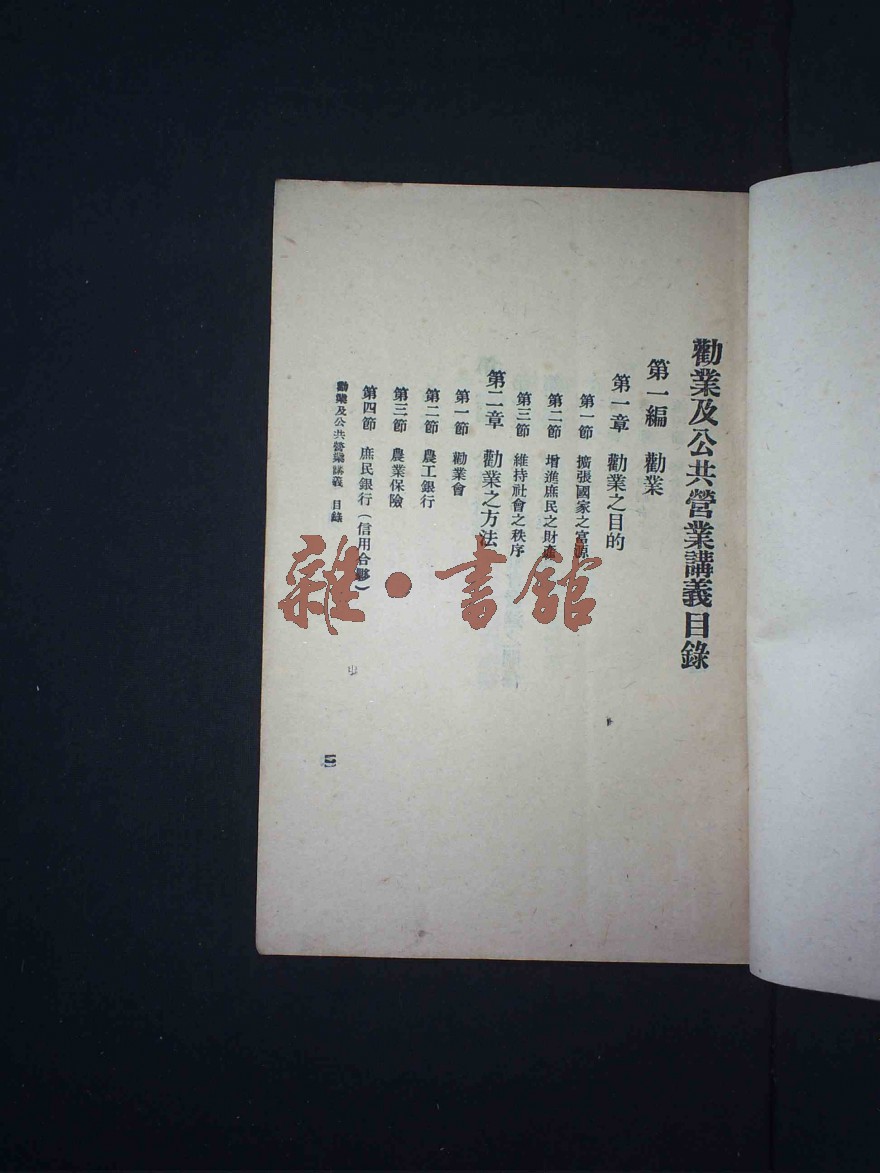 勸業及公共營業講義目錄
第一編 勸業
第一章 勸業之目的
第一節 擴張國家之富源
第二節 增進庶民之財產
第三節 維持社會之秩序
第二章 勸業之方法
第一節 勸業會
第二節 農工銀行
第三節 農業保險
第四節 庶民銀行（信用合夥）
勸業及公共營業講義 目錄
雜·書館